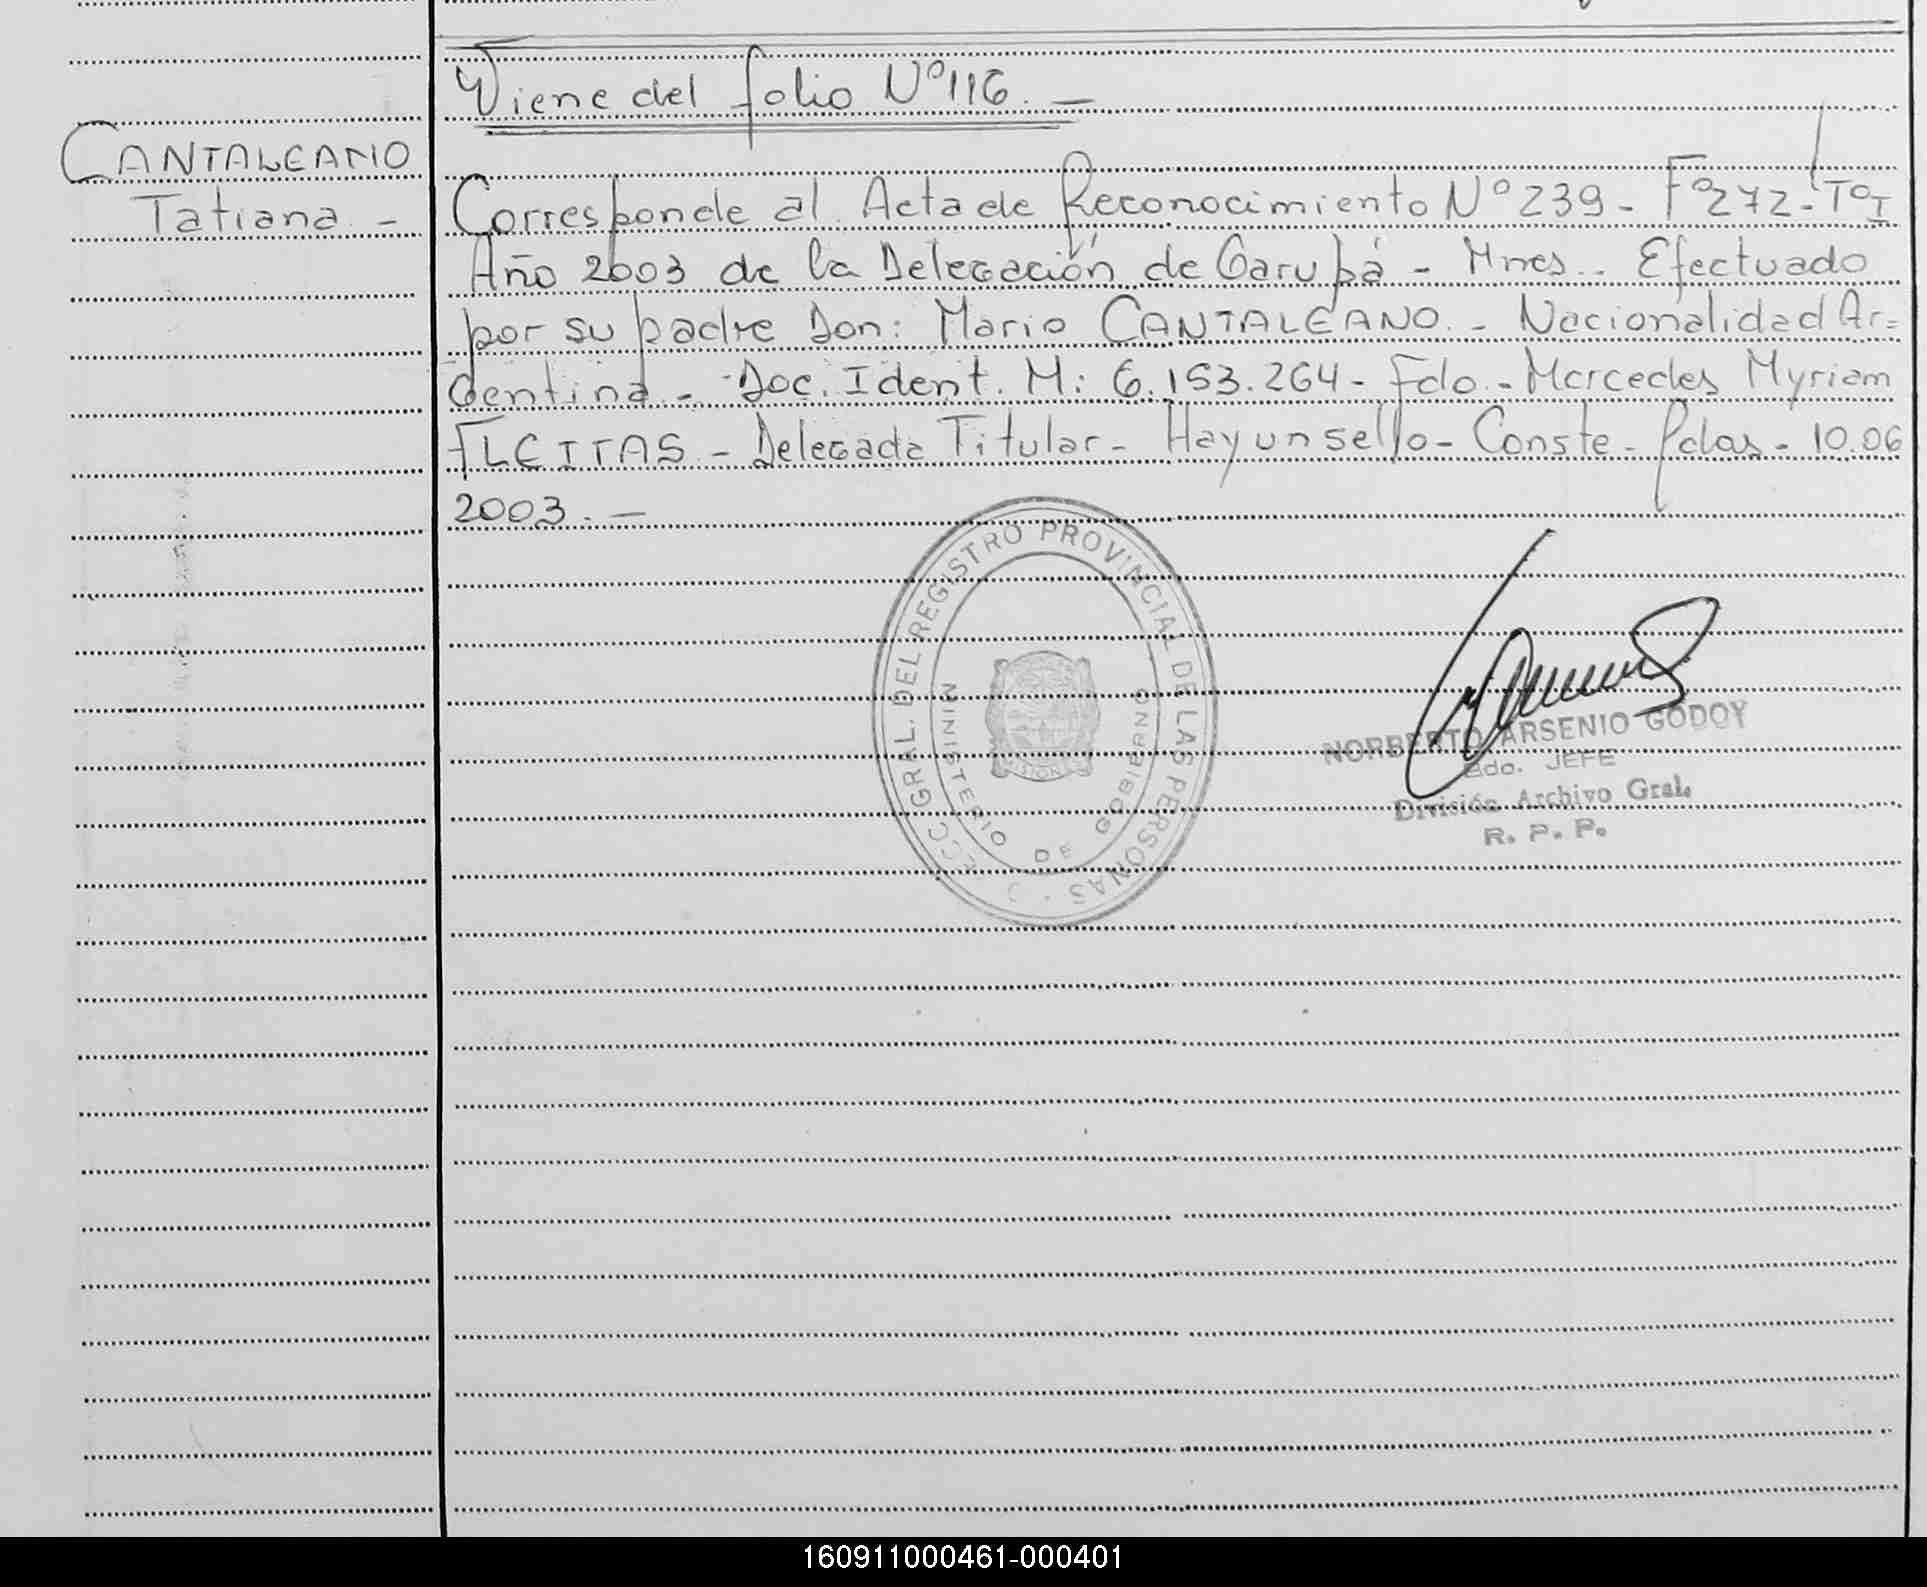 Viene del folio Nº 116. —
CANTALEANO
Tatiana. -
Corresponde al Acta de Reconocimiento Nº 239 - Fº 272 - Tº I
Año 2003 de la Delegación de Garupá - Mnes.. Efectuado
por su padre Don: Mario CANTALEANO. - Nacionalidad Ar=
gentina - Doc. Ident. M: 6.153.264 - Fdo. - Mercedes Myriam
FLEITAS - Delegada Titular - Hay un sello - Conste - Pdas - 10.06
2003. —
DIRECC. GRAL. DEL REGISTRO PROVINCIAL DE LAS PERSONAS
MINISTERIO DE GOBIERNO
NORBERTO ARSENIO GODOY
JEFE
División Archivo Gral.
R. P. P.
160911000461-000401